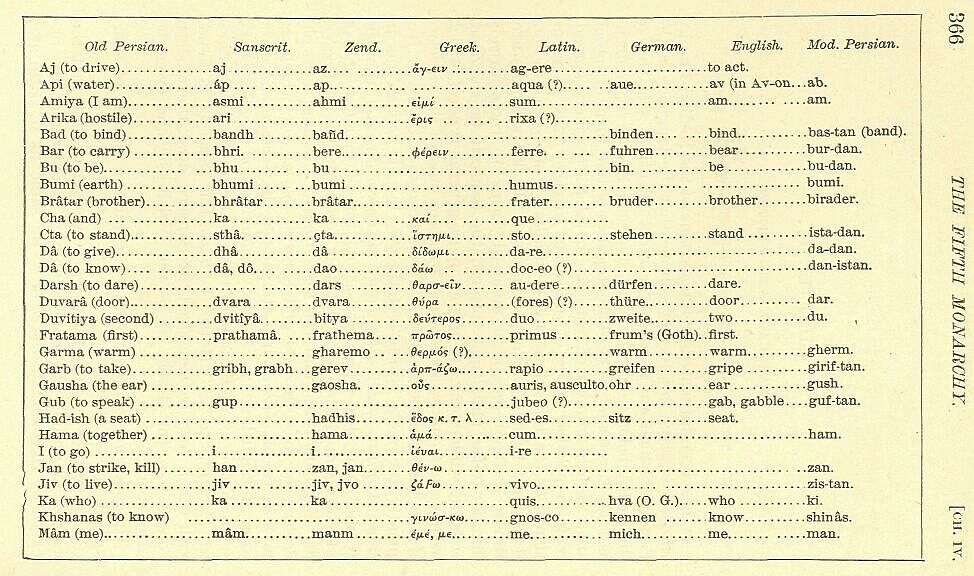 366 THE FIFTH MONARCHY. [CH. IV.
Old Persian. Sanscrit. Zend. Greek. Latin. German. English. Mod. Persian.
Aj (to drive)..............aj ..............az.... .........ἄγ-ειν .:.......ag-ere ..........................to act.
Api (water)................âp .... ........ap..........................aqua (?)..... ..aue..........av (in Av-on...ab.
Amiya (I am)............asmi ..........ahmi ........εἰμί ..........sum..........................am........ ....am.
Arika (hostile)............ari ..........................ἔρις .. .... ....rixa (?).........
Bad (to bind)..............bandh ........bañd..........................................binden.... ....bind.............bas-tan (band).
Bar (to carry) ............bhri. ..........bere..........φέρειν........ferre. .. .. ...fuhren........bear............bur-dan.
Bu (to be)..................bhu ..........bu ..........................................bin. .. ........be ..............bu-dan.
Bumi (earth) ..............bhumi ..... ....bumi ..........................humus............... .......... ............bumi.
Brâtar (brother)..........bhrâtar........brâtar..........................frater..........bruder........brother........birader.
Cha (and) ... ............ka ............ka ............καί.... ........que............
Cta (to stand)..............sthâ. ..........çta............ἵστημι........sto..............stehen........stand .... .....ista-dan.
Dâ (to give)................dhâ............dâ ............δίδωμι........da-re..........................................da-dan.
Dâ (to know)...............dâ, dô.... ....dao ..........δάω .. ........doc-eo (?)....................................dan-istan.
Darsh (to dare)..........................dars ..........θαρσ-εῖν ....au-dere ......dürfen........dare.
Duvarâ (door)..............dvara ..........dvara ........θύρα ........(fores) (?)......thüre..........door............dar.
Duvitiya (second) ........dvitîyâ..........bitya ..........δεύτερος......duo .... ........zweite..........two ............du.
Fratama (first)............prathamâ. ....frathema. ....πρῶτος........primus ......frum's (Goth)..first.
Garma (warm) ..........................gharemo .. ..θερμός (?)....................warm ........warm..........gherm.
Garb (to take)..............gribh, grabh ...gerev ........ἁρπ-άζω......rapio ..........greifen ........gripe ..........girif-tan.
Gausha (the ear) ..........................gaosha. ......οὖς............auris, ausculto.ohr ............ear ............gush.
Gub (to speak) ............gup..........................................jubeo (?)....................gab, gabble....guf-tan.
Had-ish (a seat) ..........................hadhis..........ἕδος κ. τ. λ.....sed-es..........sitz ............seat.
Hama (together) ........ ................hama..........ἁμά..............cum............................................ham.
I (to go) ....................i................i................ἰέναι..........i-re ............
Jan (to strike, kill) ......han ............zan, jan........θέν-ω..........................................................zan.
Jiv (to live)................jiv..... ........jiv, jvo ......ζάFω..........vivo............................................zis-tan.
Ka (who) ..................ka ............ka ..........................quis............hva (O. G.)....who ............ki.
Khshanas (to know) ..........................................γινώσ-κω......gnos-co........kennen ......know ..........shinâs.
Mâm (me)..................mâm............manm ........ἐμέ, με........me..............mich............me........ .....man.